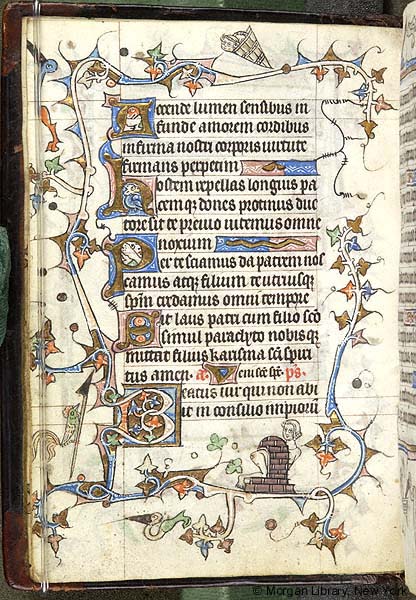 Accende lumen sensibus in
funde amorem cordibus
infirma nostri corporis uirtute
firmans perpetim
Hostem repellas longius pa
cem q; dones protinus duc
tore sic te preuio uitemus omne
noxium
Per te sciamus da patrem nos
camus atq; filium te utriusq;
sp̄m credamus omni tempore
Sit laus patri cum filio sc̄o
simul paraclyto nobisq;
mittat filius karisma sc̄i spiri
tus amen. a. Ueni sc̄e sp̄s. ps.
Beatus uir qui non abi
it in consilio impiorū
© Morgan Library, New York